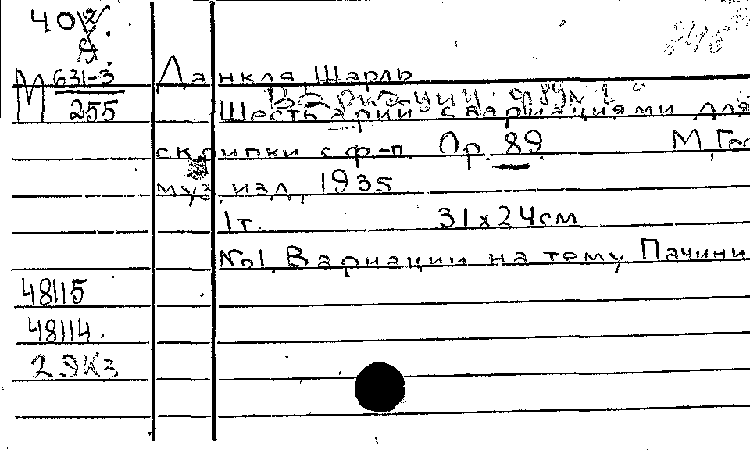 402
М 631-3
255
Данкля Шарль
Шесть арий с вариациями для
скрипки с ф.-п. Op. 89 М. Гос
муз. изд. 1935
1 т. 31 x 24 см
No1. Вариации на тему Пачини
48115
48114.
29к3